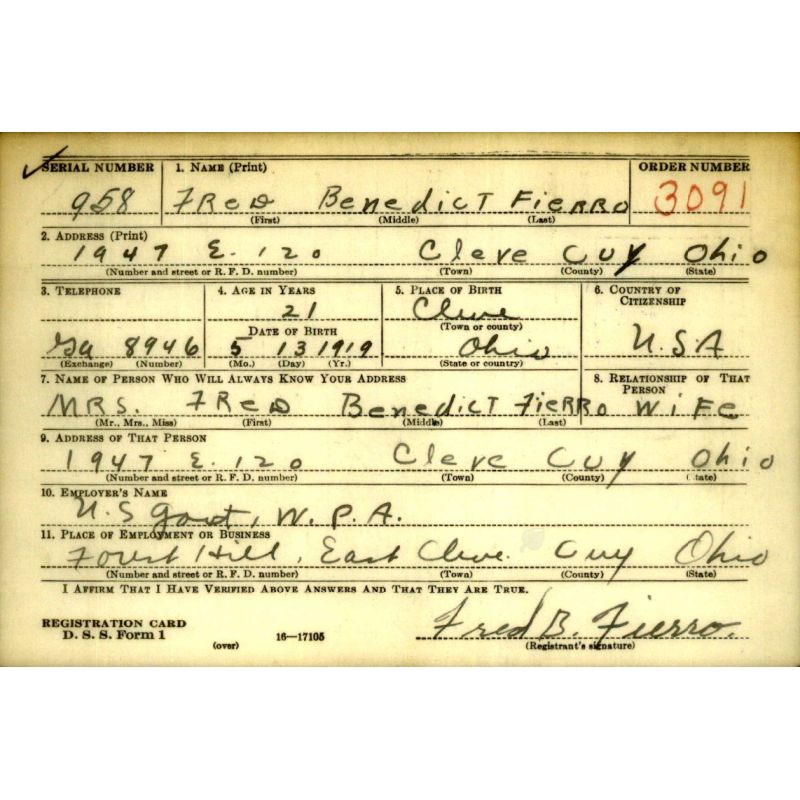 SERIAL NUMBER 1. NAME (Print) ORDER NUMBER
958 FRED Benedict FIERRO 3091
(First) (Middle) (Last)
2. ADDRESS (Print)
1947 E. 120 Cleve Cuy Ohio
(Number and street or R. F. D. number) (Town) (County) (State)
3. TELEPHONE 4. AGE IN YEARS 5. PLACE OF BIRTH 6. COUNTRY OF CITIZENSHIP
21 Cleve
DATE OF BIRTH (Town or county)
Ga 8946 5 13 1919 Ohio U.S.A
(Exchange) (Number) (Mo.) (Day) (Yr.) (State or country)
7. NAME OF PERSON WHO WILL ALWAYS KNOW YOUR ADDRESS 8. RELATIONSHIP OF THAT PERSON
MRS. FRED Benedict FIERRO WIFE
(Mr., Mrs., Miss) (First) (Middle) (Last)
9. ADDRESS OF THAT PERSON
1947 E. 120 Cleve Cuy Ohio
(Number and street or R. F. D. number) (Town) (County) (State)
10. EMPLOYER'S NAME
U.S Govt, W.P.A.
11. PLACE OF EMPLOYMENT OR BUSINESS
Forest Hill, East Cleve. Cuy Ohio
(Number and street or R. F. D. number) (Town) (County) (State)
I AFFIRM THAT I HAVE VERIFIED ABOVE ANSWERS AND THAT THEY ARE TRUE.
REGISTRATION CARD
D. S. S. Form 1 (over) 16—17105 Fred B. Fierro.
(Registrant's signature)